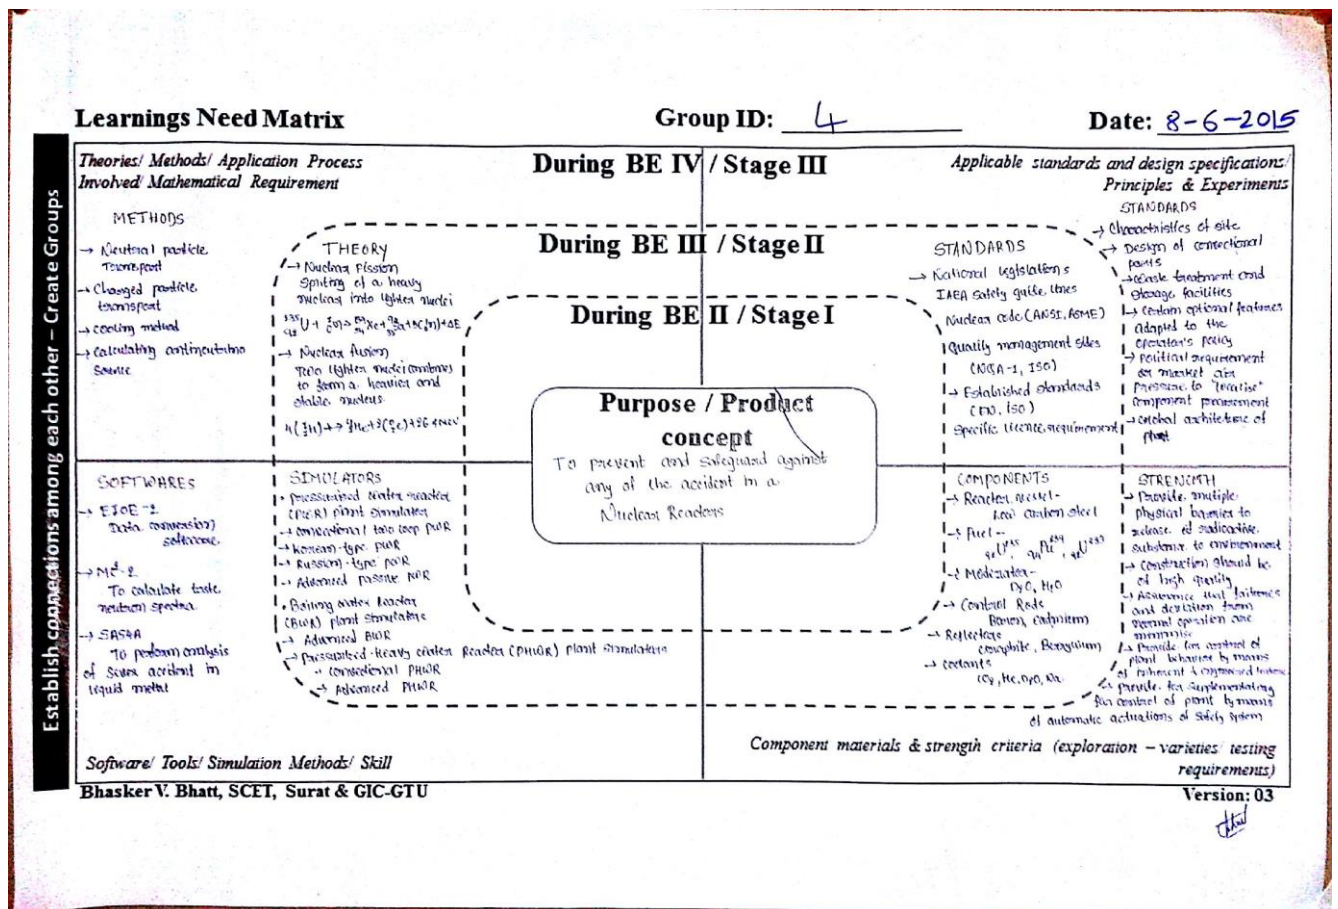 Learnings Need Matrix
Group ID: 4
Date: 8-6-2015
Establish connections among each other – Create Groups
Theories/ Methods/ Application Process
Involved/ Mathematical Requirement
During BE IV / Stage III
Applicable standards and design specifications/
Principles & Experiments
METHODS
→ Neutral particle
Transport
→ Charged particle
transport
→ cooling method
→ Calculating antineutrino
Source
During BE III / Stage II
THEORY
→ Nuclear Fission
Spliting of a heavy
nuclear into lighter nuclei
→ Nuclear fusion
Two lighter nuclei combines
to form a heavier and
stable nucleus.
During BE II / Stage I
STANDARDS
→ National legislations
IAEA Safety guide lines
Nuclear code (ANSI, ASME)
Quality management
(NQA-1, ISO)
→ Established standards
(EN, ISO)
Specific licence requirement
STANDARDS
→ Characteristics of site
→ Design of conventional
parts
→ waste treatment and
storage facilities
→ certain optional features
adapted to the
operator's policy
→ Political requirement
or market
pressure to "localise"
component procurement
→ Global architecture of
plant
Purpose / Product
concept
To prevent and safeguard against
any of the accident in a
Nuclear Reactors
SOFTWARES
→ ETOE-2
Data conversion
software.
→ MC²-2
To calculate
neutron spectra
→ SAS4A
To perform analysis
of sever accident in
liquid metal
SIMULATORS
• Pressurised water reactor
(PWR) plant simulator
→ conventional two loop PWR
→ Korean-type PWR
→ Russian-type PWR
→ Advanced passive PWR
• Boiling water Reactor
(BWR) plant simulators
→ Advanced BWR
→ Pressurised-Heavy water Reactor (PHWR) plant simulators
→ conventional PHWR
→ Advanced PHWR
COMPONENTS
→ Reactor vessel-
Low carbon steel
→ Fuel-
→ Moderator-
D₂O, H₂O
→ Control Rods
Boron, cadmium
→ Reflectors
Graphite, Beryllium
→ coolants
CO₂, He, D₂O, Na.
STRENGTH
→ Provide multiple
physical barrier to
release of radioactive
substance to environment
→ Construction should be
of high quality
→ Assurance that failures
and deviation from
normal operation are
minimise
→ Provide for control of
plant behavior by means
of inherent & engineered
→ Provide for supplementating
control of plant by means
of automatic actuations of safety system
Software/ Tools/ Simulation Methods/ Skill
Component materials & strength criteria (exploration – varieties/ testing
requirements)
Bhasker V. Bhatt, SCET, Surat & GIC-GTU
Version: 03